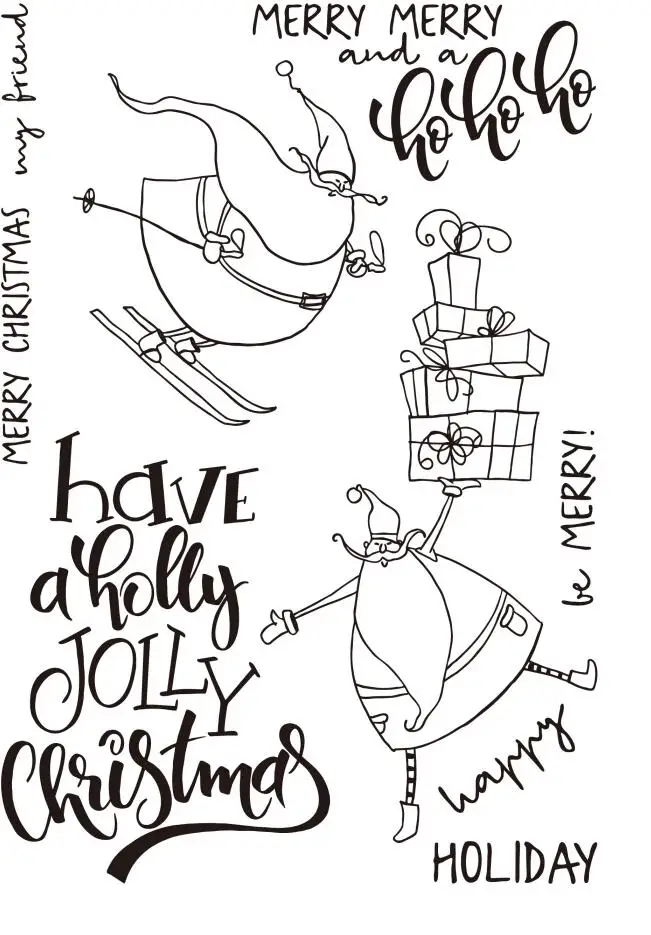 MERRY MERRY
and a
ho ho ho
MERRY CHRISTMAS my friend
have
a holly
JOLLY
Christmas
be MERRY!
happy
HOLIDAY